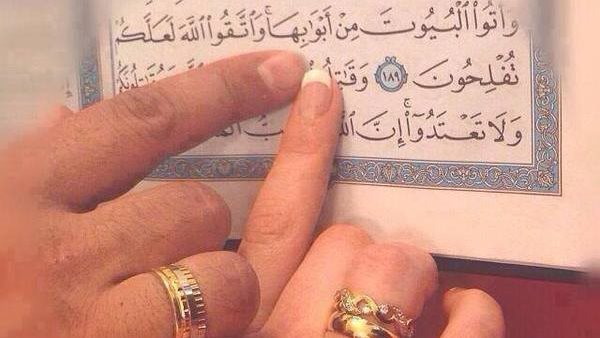 وَأْتُوا۟ ٱلْبُيُوتَ مِنْ أَبْوَٰبِهَا ۚ وَٱتَّقُوا۟ ٱللَّهَ لَعَلَّكُمْ
تُفْلِحُونَ ١٨٩ يُقَٰتِلُونَكُمْ
وَلَا تَعْتَدُوٓا۟ ۚ إِنَّ ٱللَّهَ